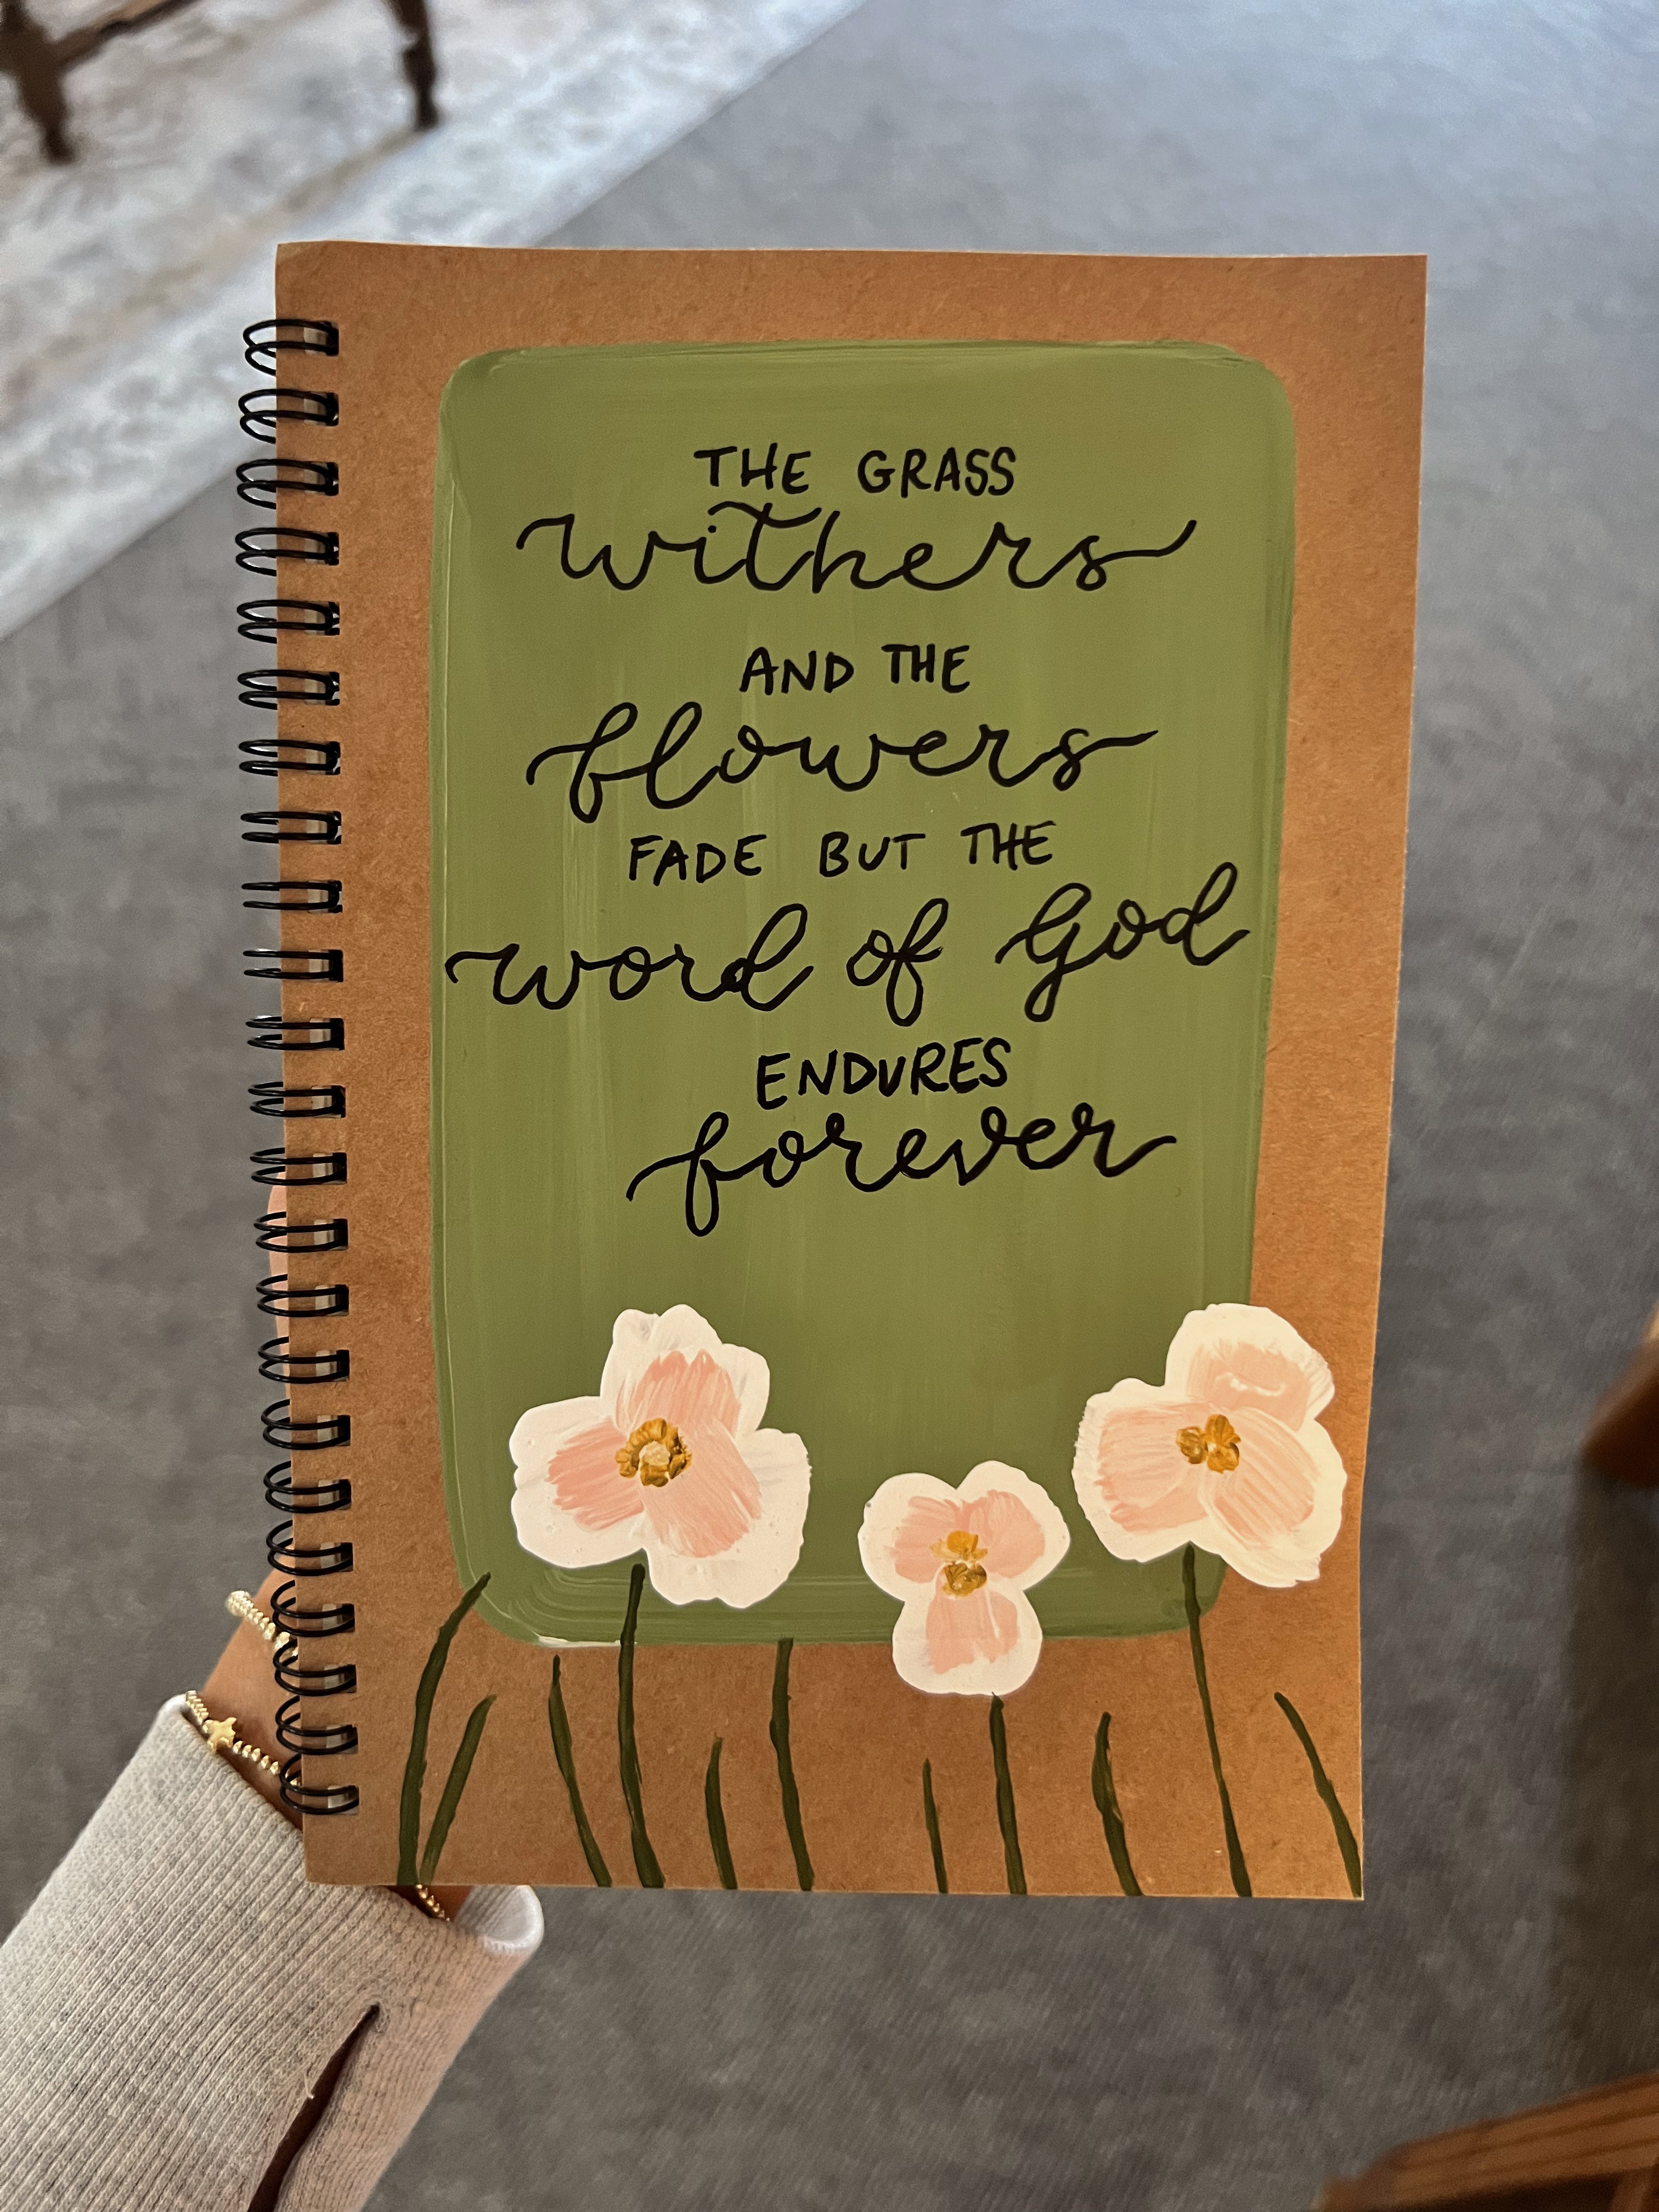 THE GRASS
withers
AND THE
flowers
FADE BUT THE
word of God
ENDURES
forever